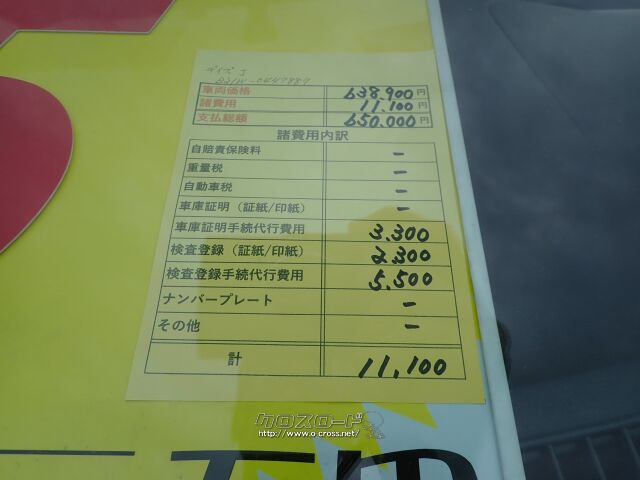 デイズ J
B21W-0447887
車両価格 638,900円
諸費用 11,100円
支払総額 650,000円
諸費用内訳
自賠責保険料 ー
重量税 ー
自動車税 ー
車庫証明（証紙/印紙） ー
車庫証明手続代行費用 3,300
検査登録（証紙/印紙） 2,300
検査登録手続代行費用 5,500
ナンバープレート ー
その他 ー
計 11,100
クロスロード
http://www.o-cross.net/